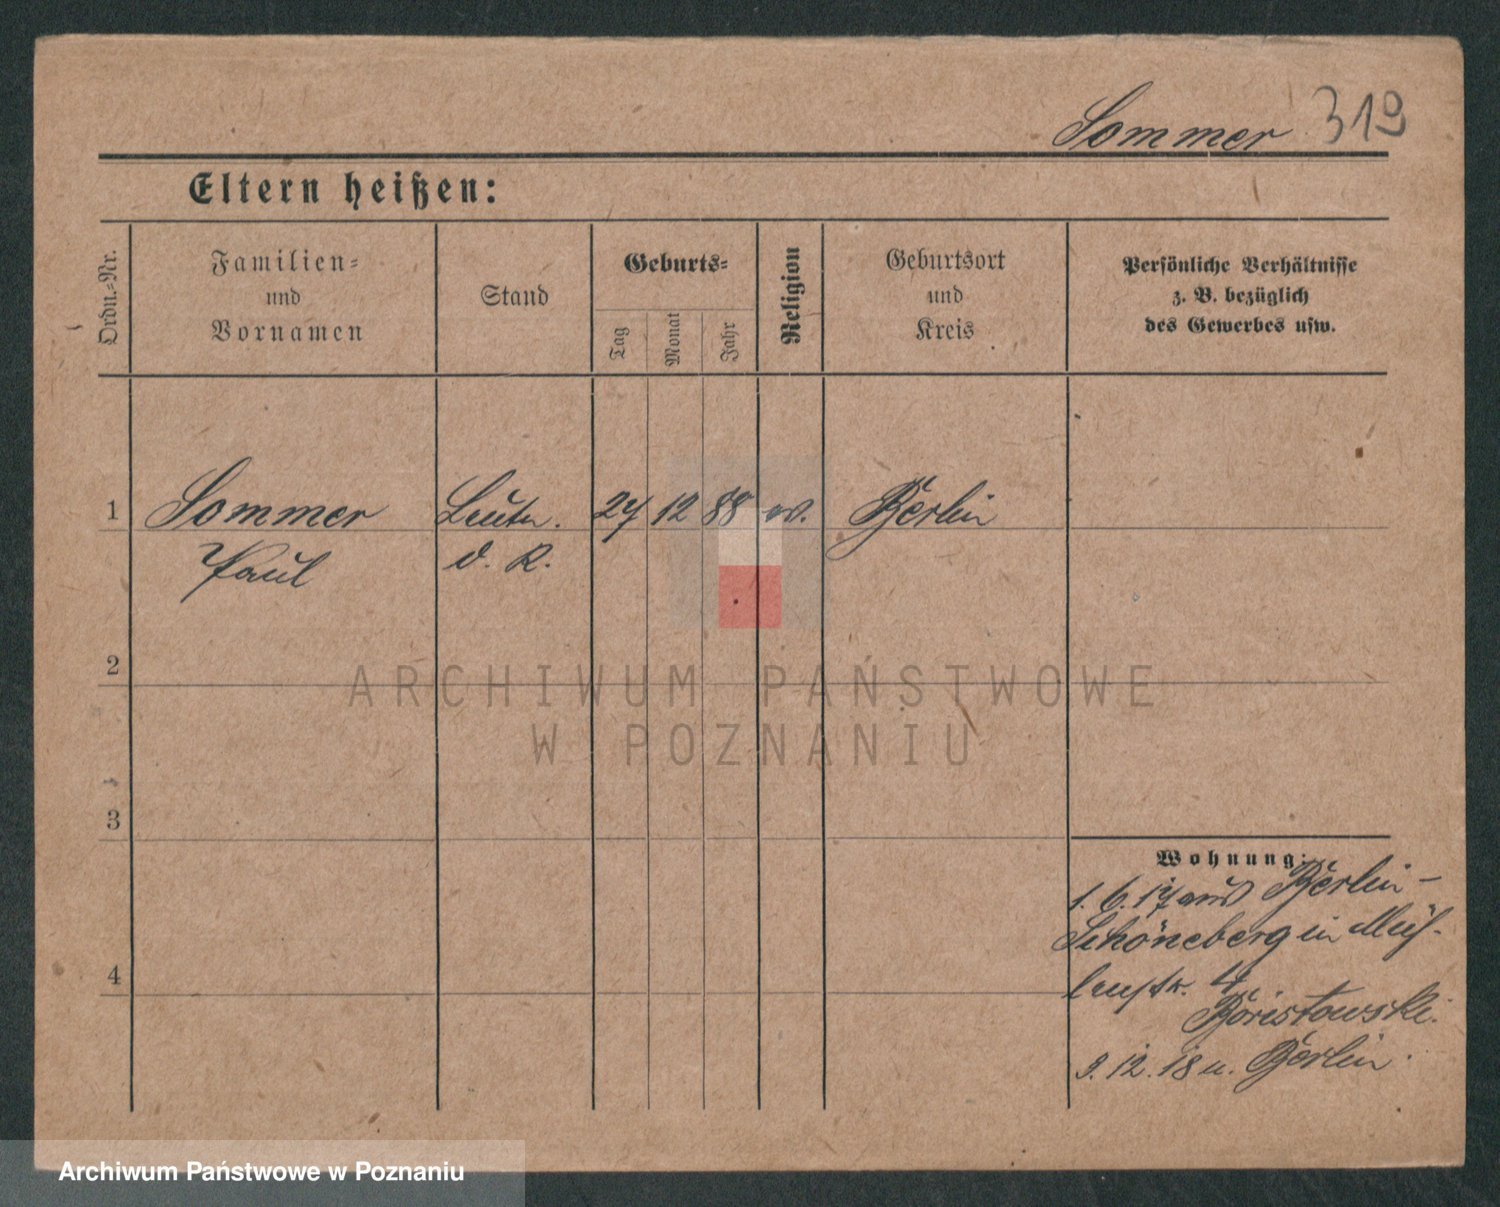 Sommer 319
Eltern heißen:
Ordn.-Nr.
Familien-
und
Vornamen
Stand
Geburts-
Tag
Monat
Jahr
Religion
Geburtsort
und
Kreis
Persönliche Verhältnisse
z. B. bezüglich
des Gewerbes usw.
1 Sommer Leutn. 27 12 88 ev. Berlin
Paul d. R.
2
3
4
Wohnung:
1. 6. 17 aus Berlin-
Schöneberg in Müh-
lenstr. 4
Boristowski.
3. 12. 18 n. Berlin.
ARCHIWUM PAŃSTWOWE
W POZNANIU
Archiwum Państwowe w Poznaniu